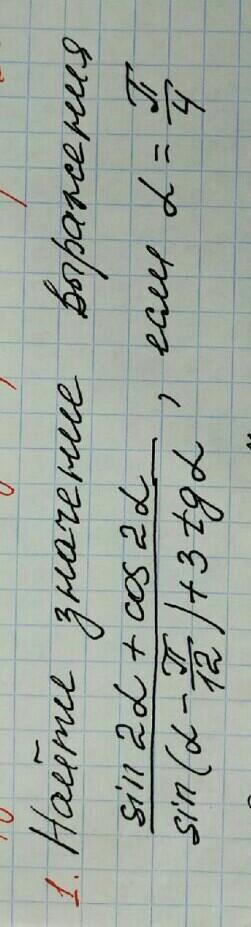 1. Найти значение выражения
sin2α + cos2α
sin(α - π/12) + 3tgα , если α = π/4